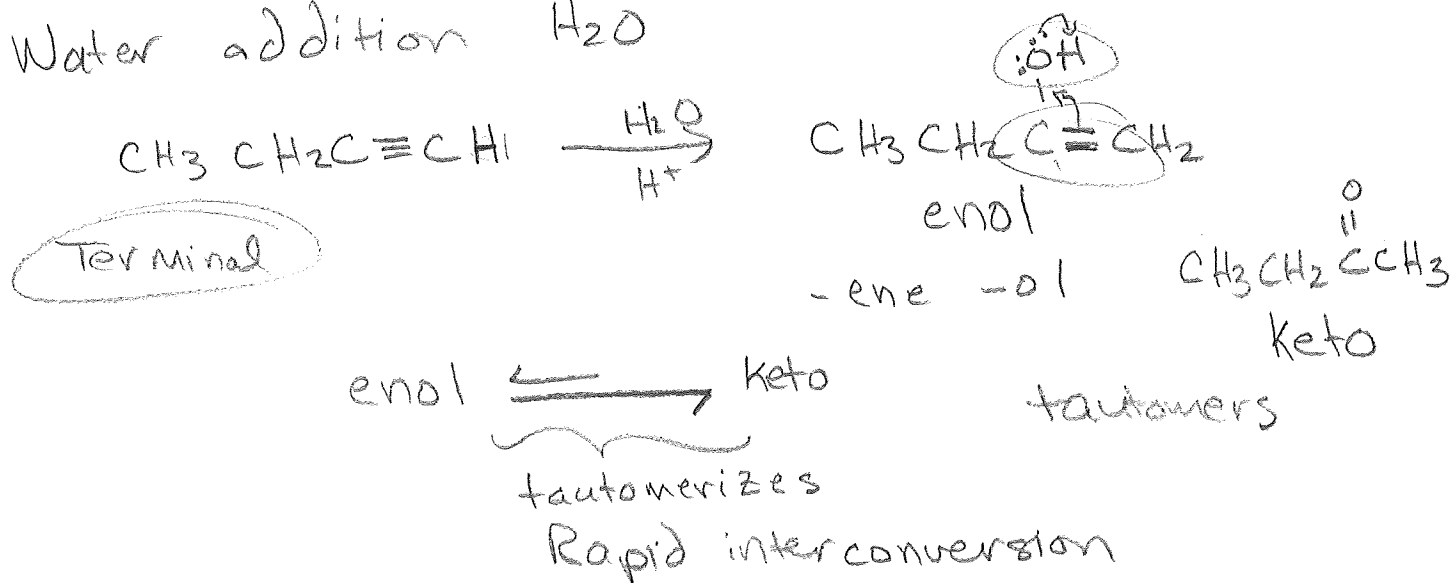 Water addition H2O
:ÖH
CH3 CH2C≡CH
H2O
H+
CH3 CH2 C=CH2
enol
Terminal
-ene -ol
O
CH3 CH2 C CH3
keto
enol ⇌ keto
tautomers
tautomerizes
Rapid interconversion